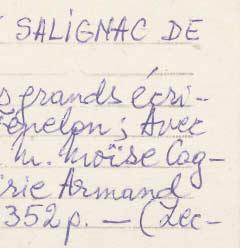 SALIGNAC DE
s grands écri-
Fénelon ; Avec
M. Moïse Cag-
irie Armand
352 p. — (Lec-